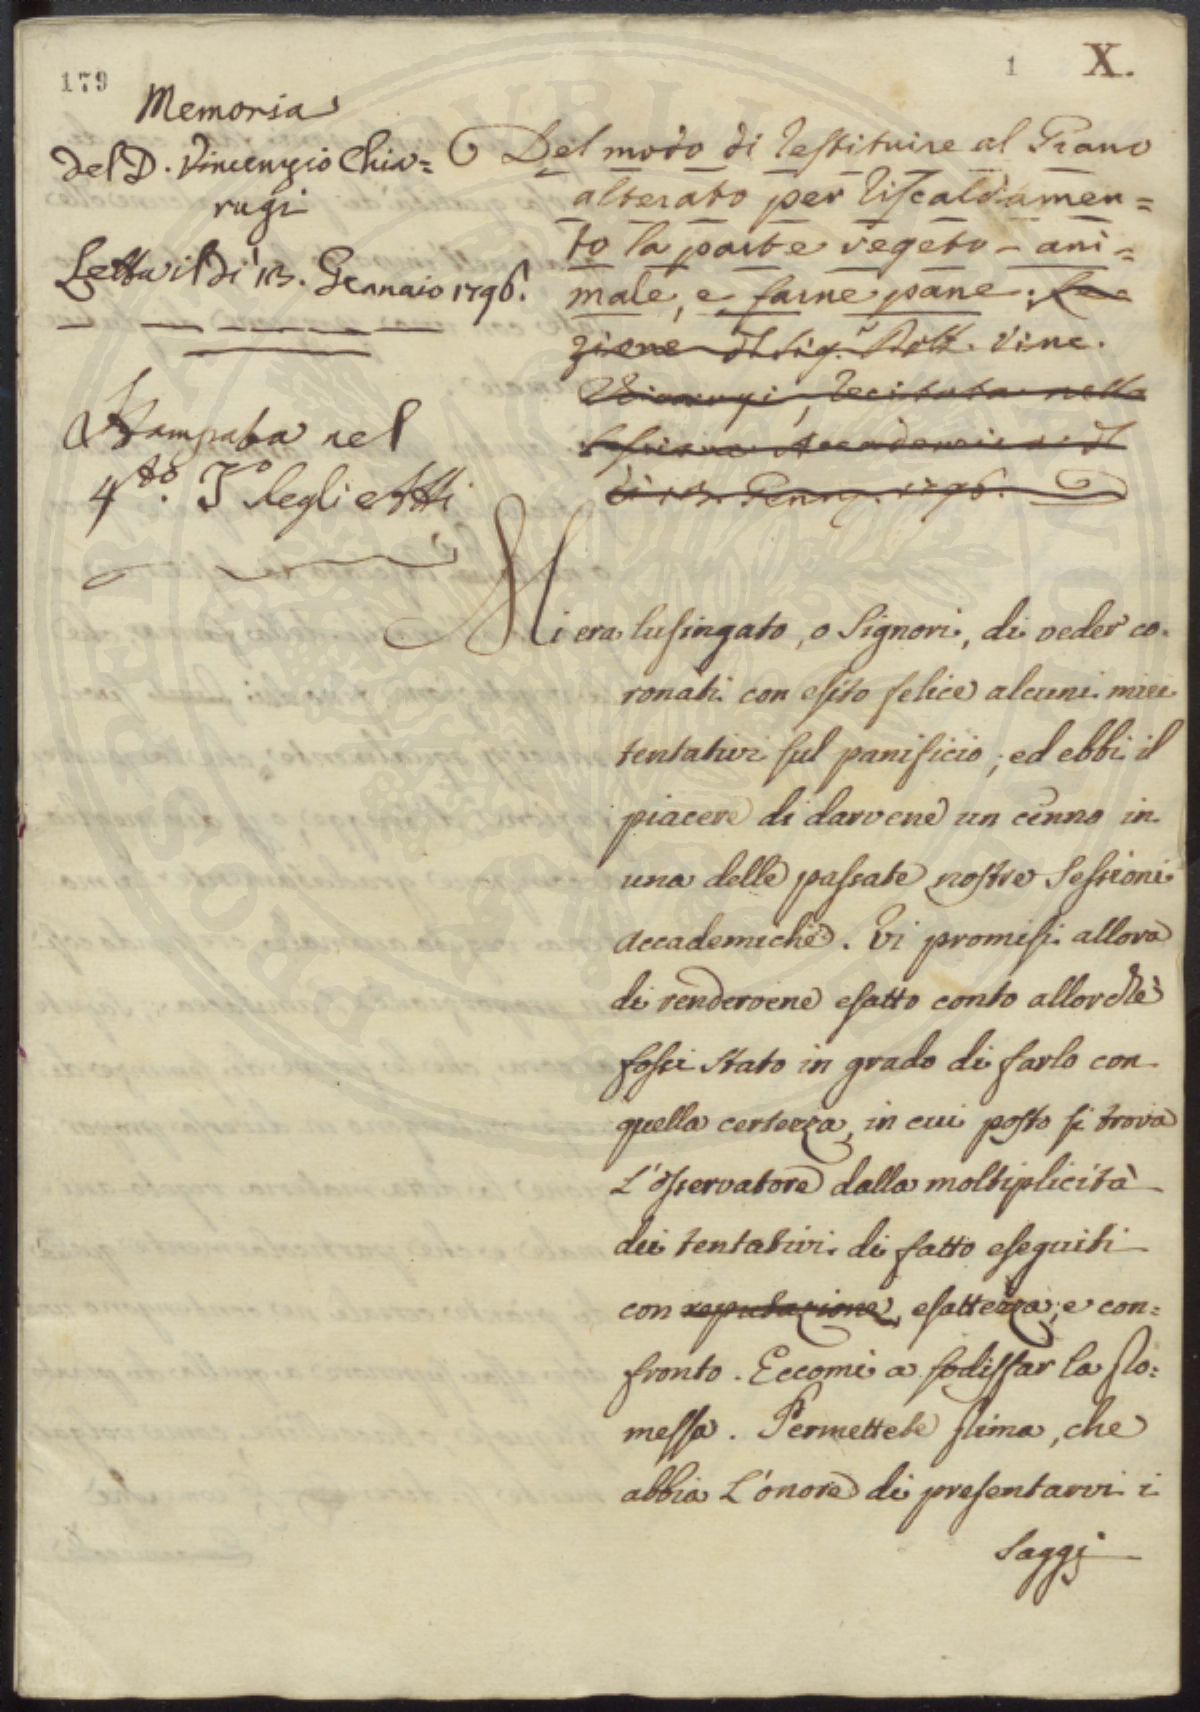 179
1 X.
Memoria
del D. Vincenzio Chia=
rugi
Letta il dì 13. Gennaio 1796.
Stampata nel
4.to To degli Atti
Del modo di restituire al Grano
alterato per riscaldamen=
to la parte vegeto-ani=
male, e farne pane.
zione del Sig.r Dott. Vinc.
Chiarugi, recitata nella
Sessione Accademica del
dì 13. Genn. 1796.
Mi era lusingato, o Signori, di veder co-
ronati con esito felice alcuni miei
tentativi sul panificio; ed ebbi il
piacere di darvene un cenno in
una delle passate nostre Sessioni
Accademiche. Vi promisi allora
di rendervene esatto conto allorchè
fossi stato in grado di farlo con
quella certezza, in cui posto si trova
L'osservatore dalla moltiplicità
dei tentativi di fatto eseguiti
con reputazione, esattezza, e con=
fronto. Eccomi a sodisfar la pro=
messa. Permettete prima, che
abbia L'onore di presentarvi i
Saggj